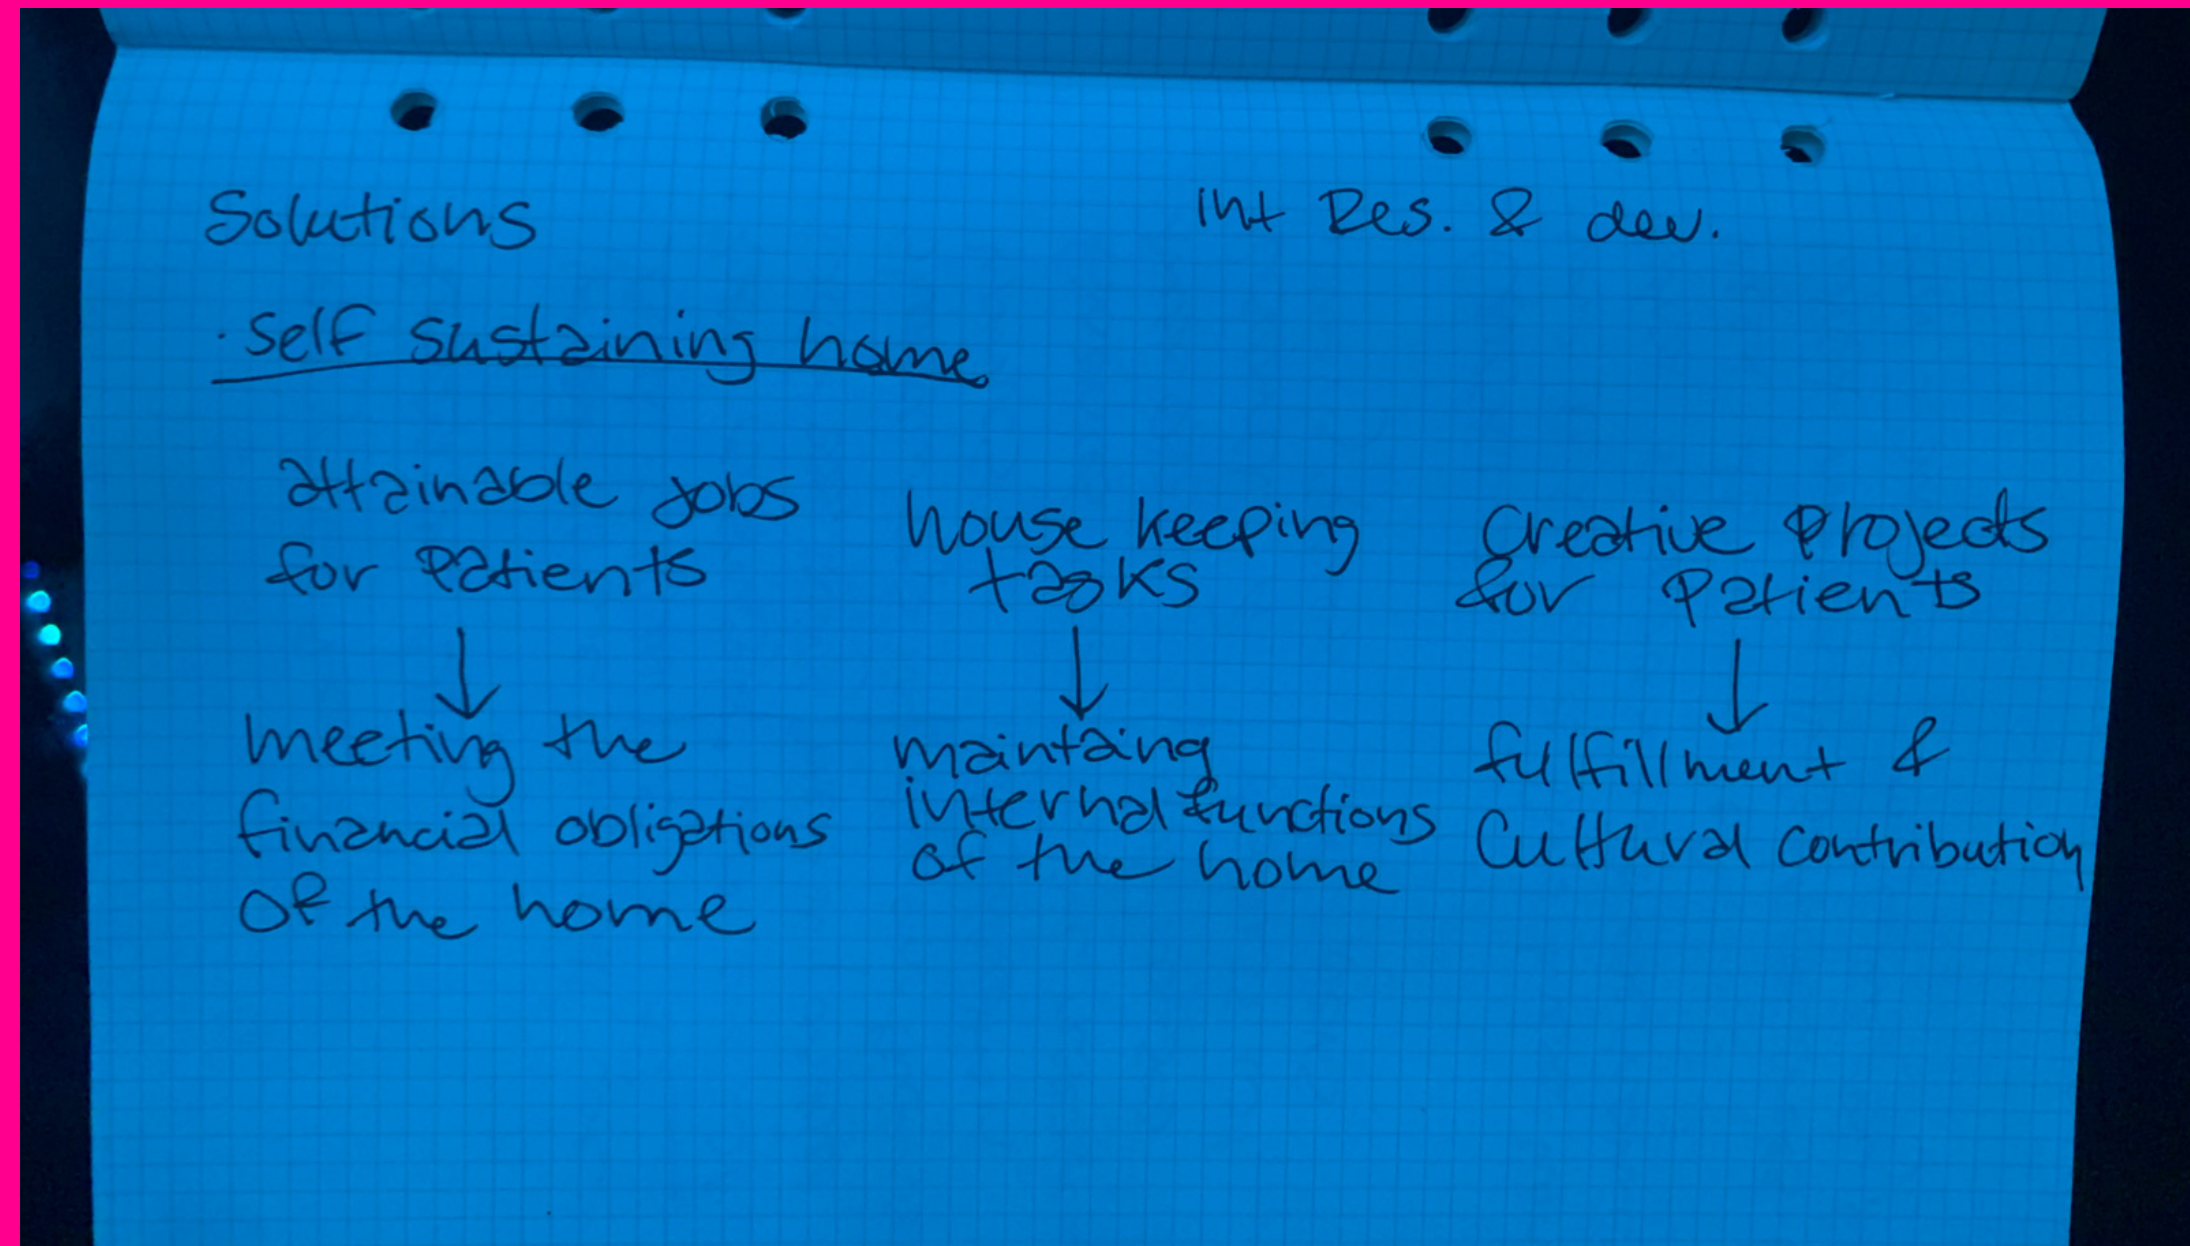 Solutions
int Res. & dev.
· self sustaining home
attainable jobs
for patients
↓
meeting the
financial obligations
of the home
house keeping
tasks
↓
maintaing
internal functions
of the home
creative projects
for patients
↓
fulfillment &
Cultural contribution